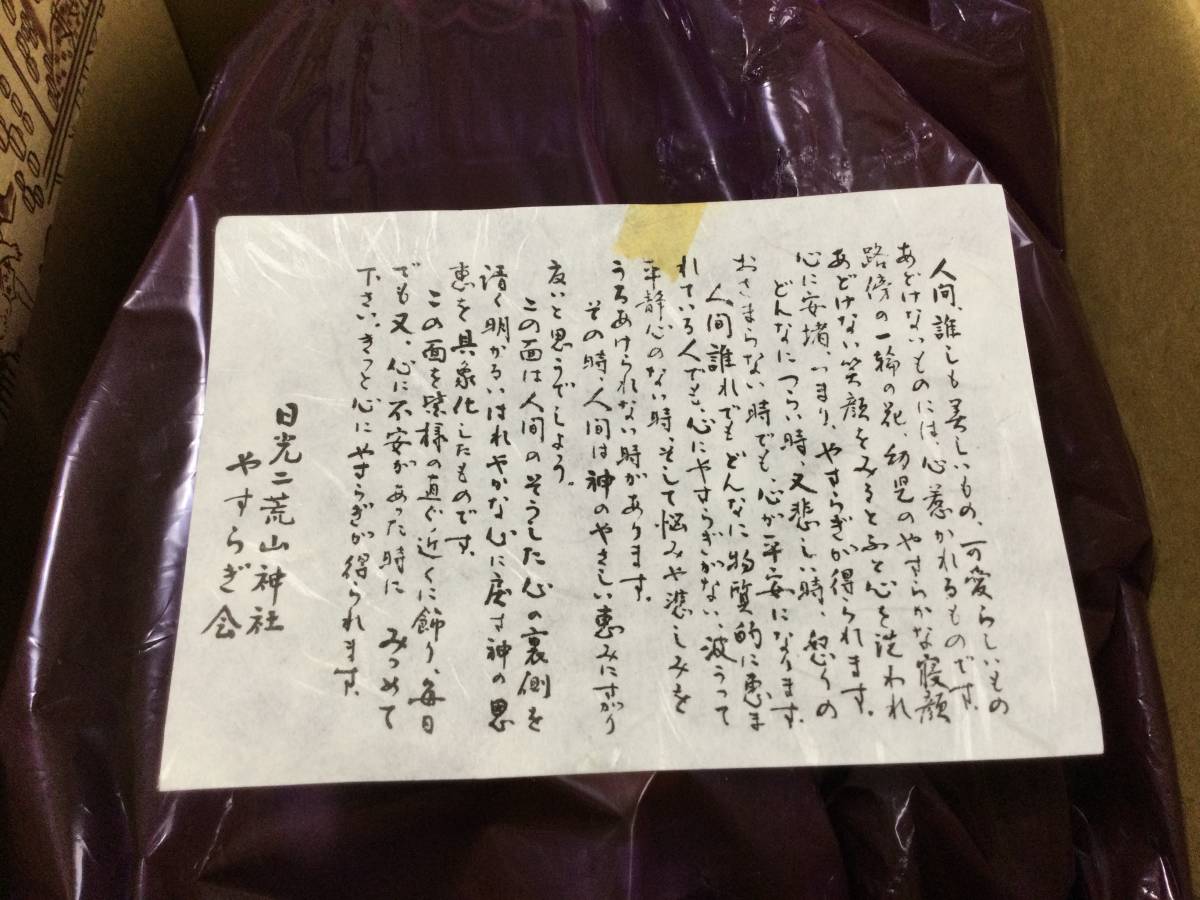 人間、誰しも美しいもの、可愛らしいもの
あどけないものには、心惹かれるものです。
路傍の一輪の花、幼児のやすらかな寝顔
あどけない笑顔をみるとふと心を洗われ
心に安堵、つまり、やすらぎが得られます。
どんなにつらい時、又悲しい時、怒りの
おさまらない時でも、心が平安になります。
人間誰れでもどんなに物質的に恵ま
れている人でも、心にやすらぎがない、波うって
平静心のない時、そして悩みや悲しみを
うちあけられない時があります。
その時、人間は神のやさしい恵みにすがり
度いと思うでしょう。
この面は人間のそうした心の裏側を
諸く明かるいはれやかな心に戻す神の思
恵を具象化したものです。
この面を皆様の直ぐ近くに飾り、毎日
でも又、心に不安があった時に みつめて
下さい。きっと心にやすらぎが得られます。
日光二荒山神社
やすらぎ会